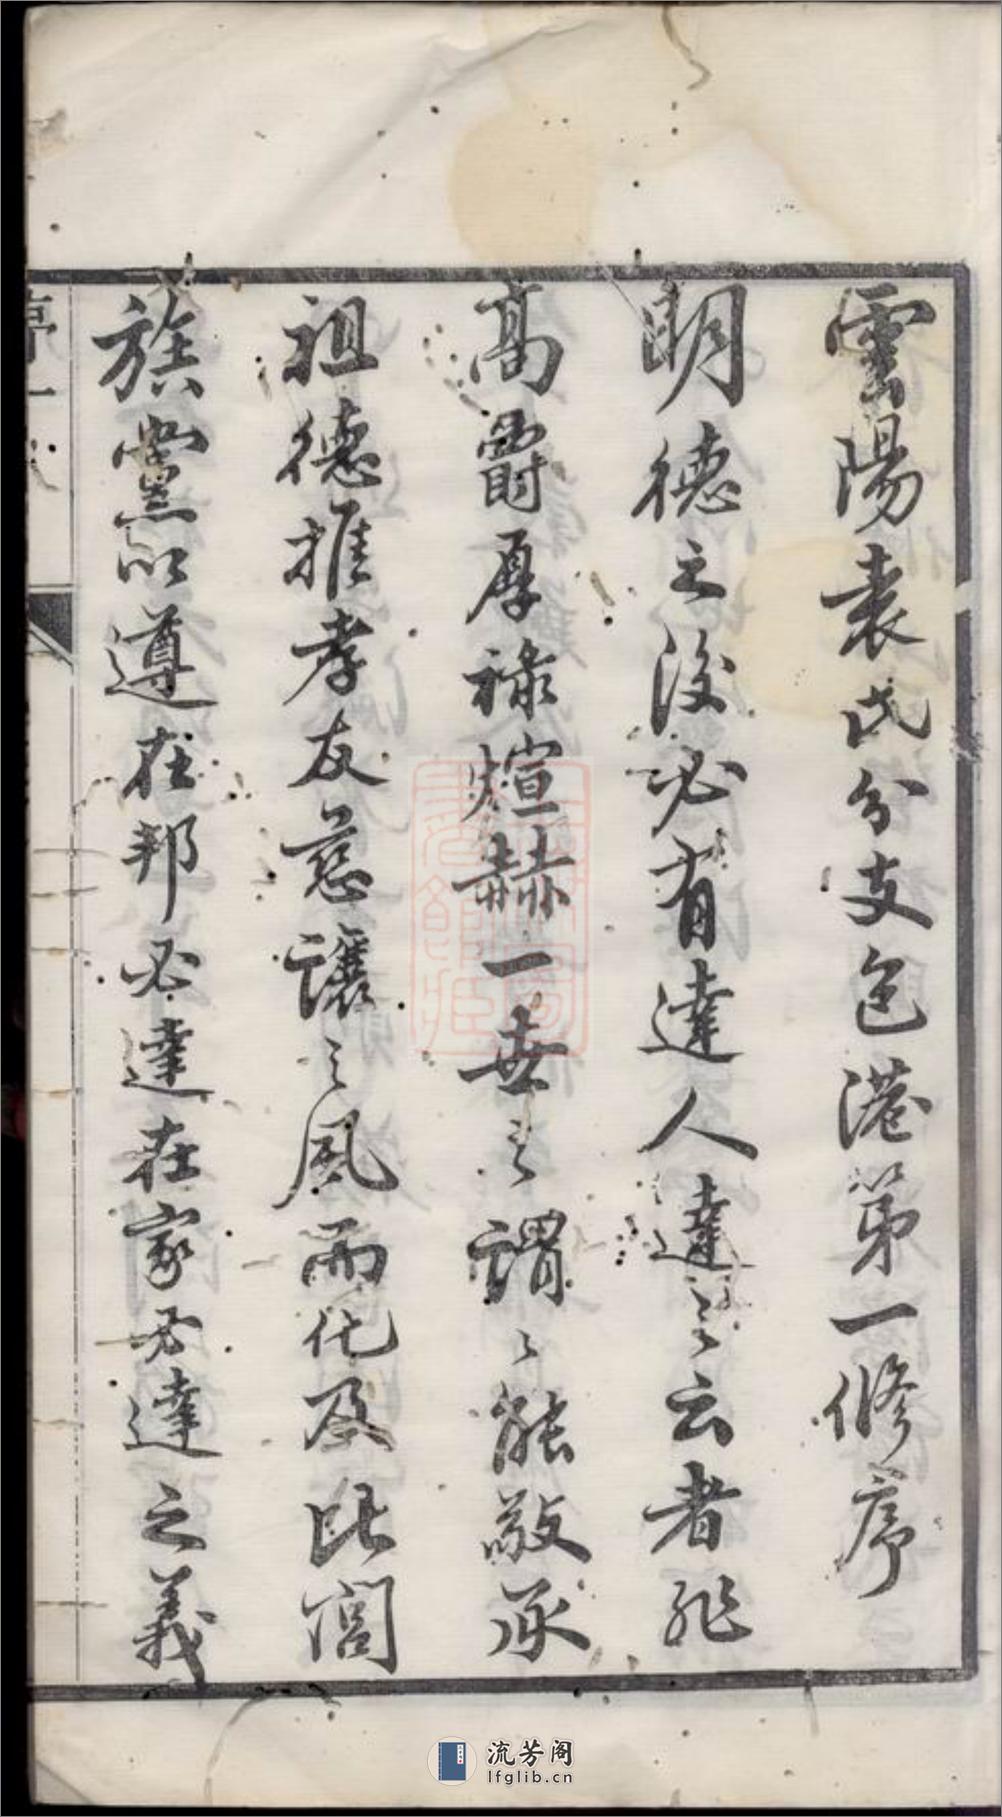 雲陽袁氏分支包港第一修序
明德之後必有達人達之云者非
高爵厚祿煊赫一世之謂〻能敬承
祖德推孝友慈讓之風而化及比閭
族黨以遵在邦必達在家必達之義
流芳阁
lfglib.cn